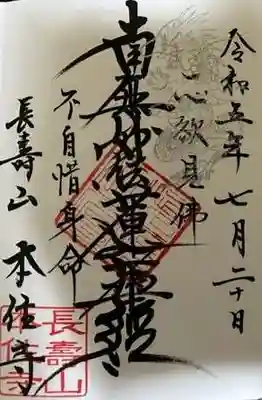 令和五年七月二十日
一心欲見佛
南無妙法蓮華経
不自惜身命
長壽山
本住寺
長壽山
本住寺